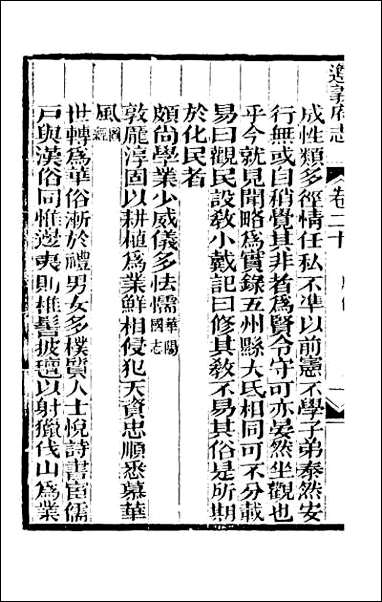 遵義府志　卷二十　風俗　一
成性類多徑情任私不準以前憲不學子弟泰然安
行無或自稍覺其非者爲賢令守可亦晏然坐觀也
乎今就見聞略爲實錄五州縣大氐相同可不分載
易曰觀民設敎小戴記曰修其敎不易其俗是所期
於化民者
頗尚學業少威儀多怯懦華陽國志
敦龐淳固以耕植爲業鮮相侵犯天資忠順悉慕華
風圖經
世轉爲華俗漸於禮男女多樸質人士悅詩書宦儒
戸與漢俗同惟邊夷則椎髻披氊以射獵伐山爲業